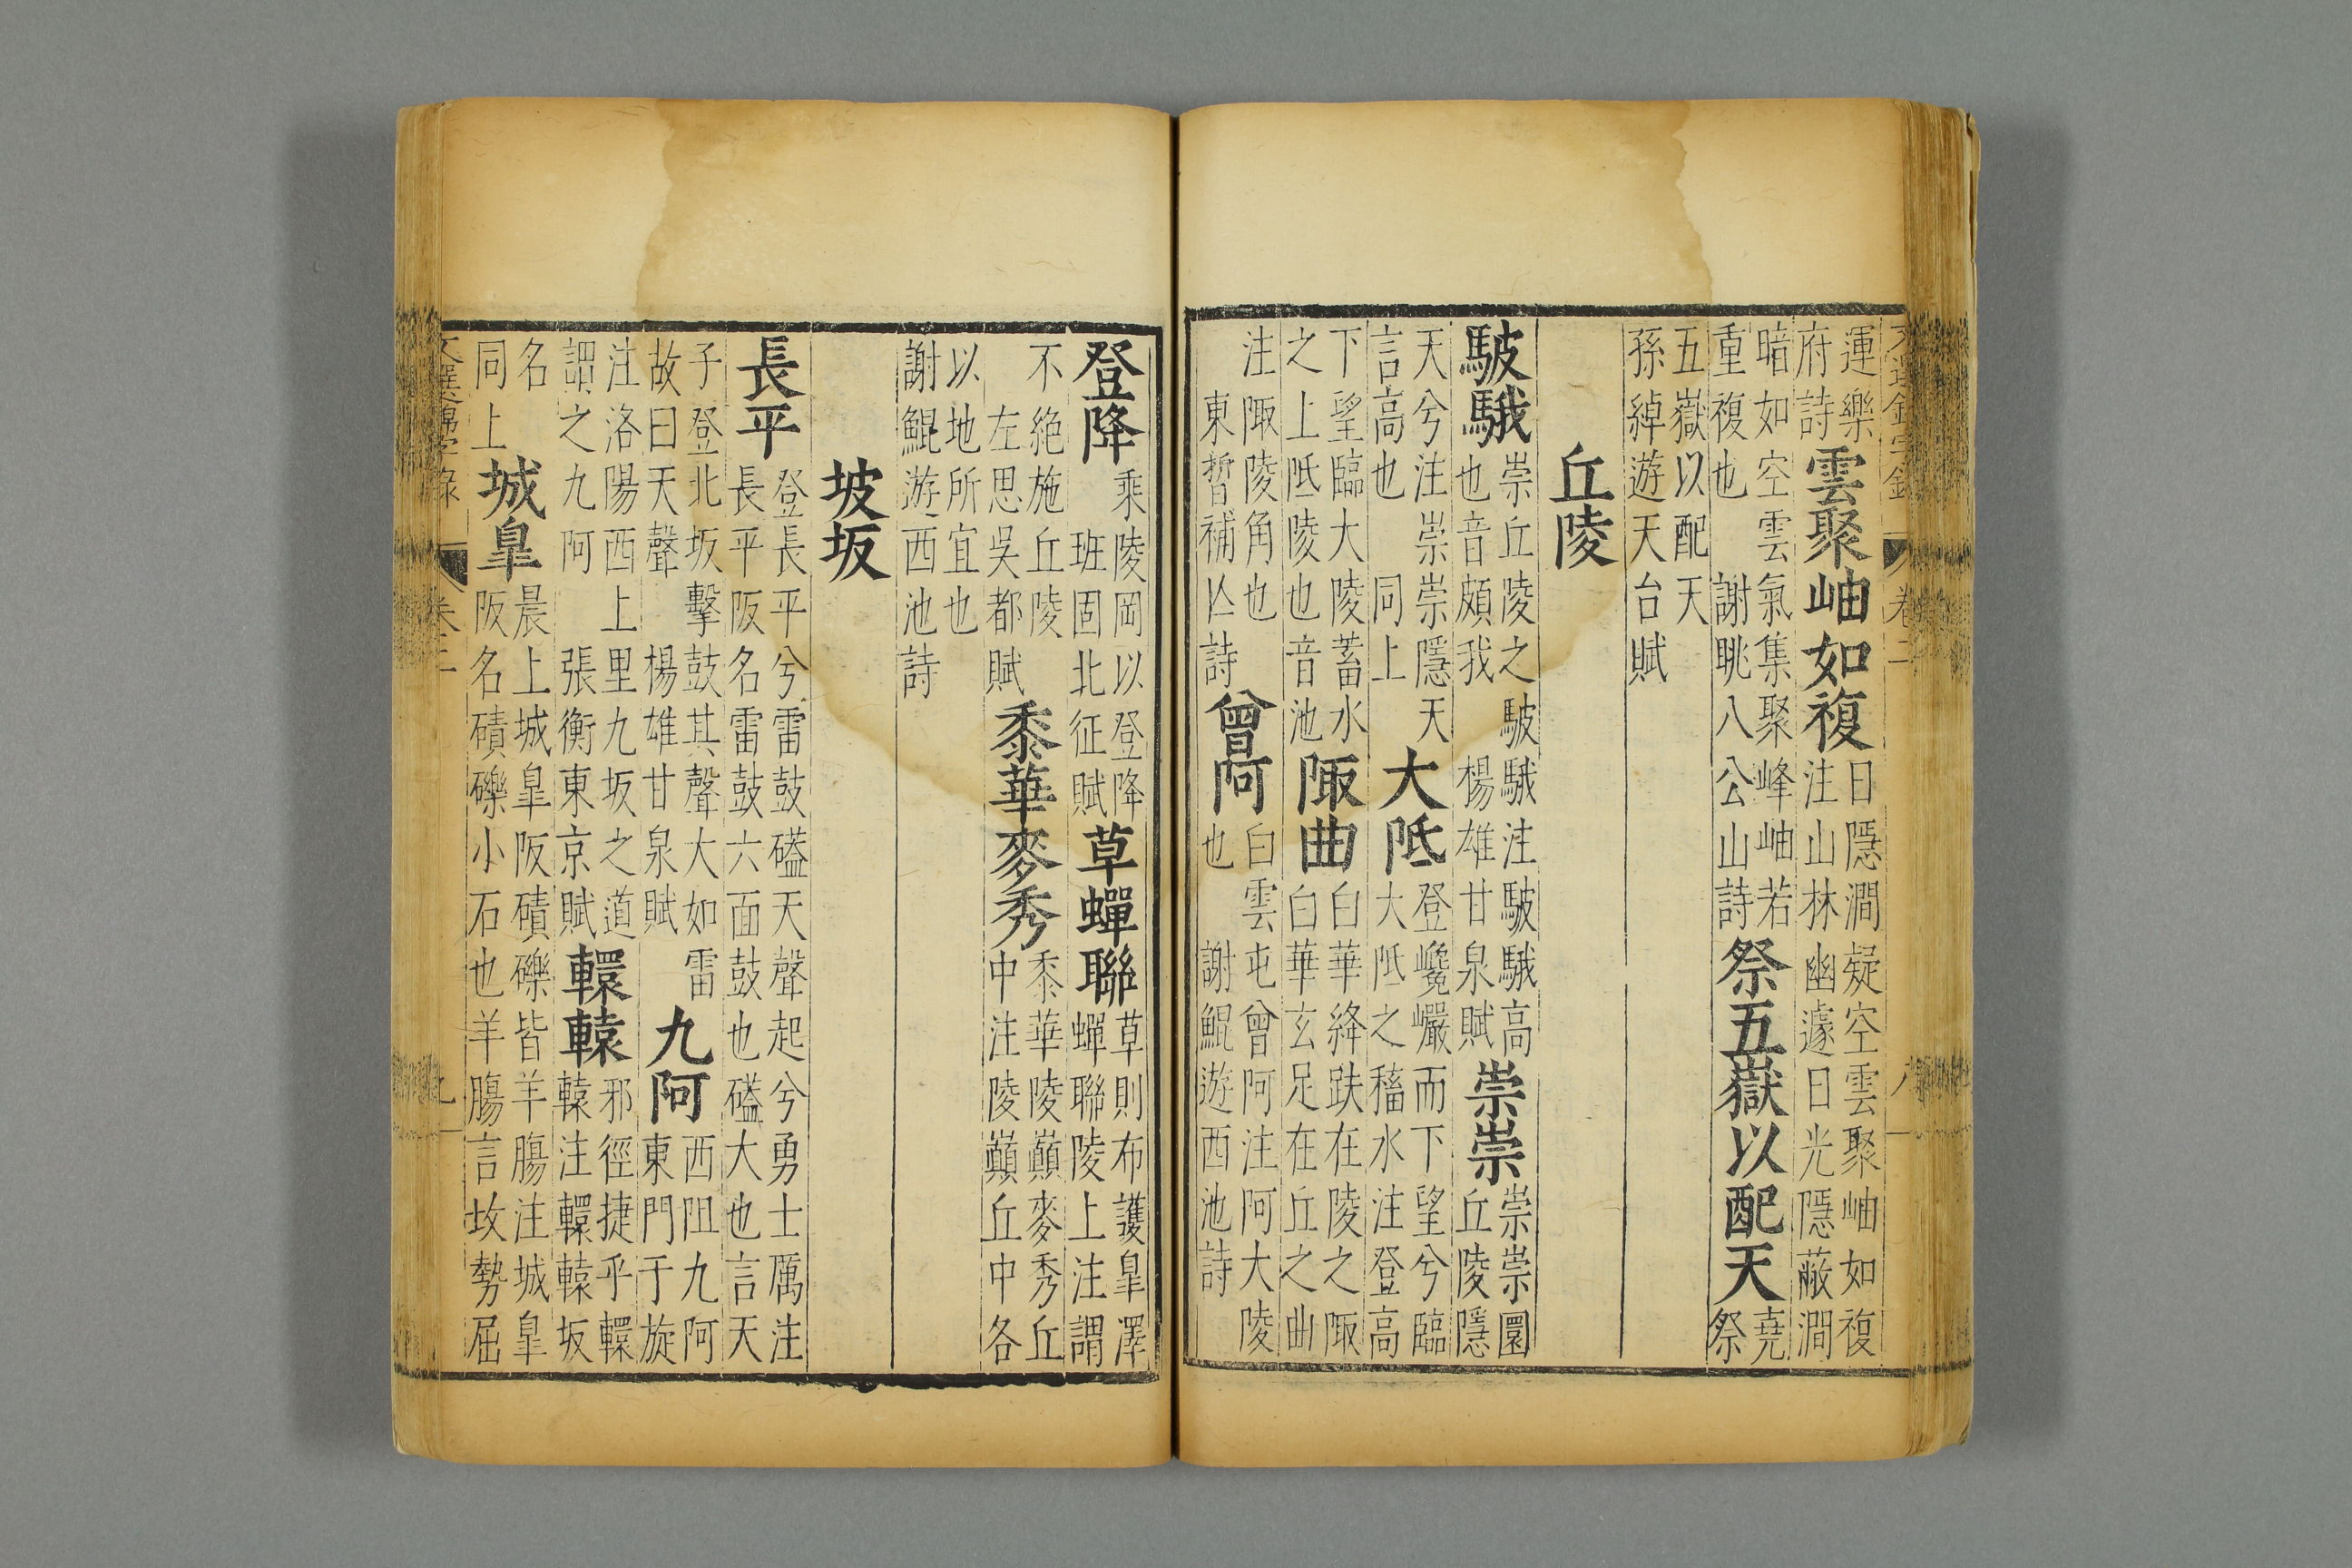 運樂
府詩
雲聚岫如複
日隱澗凝空雲聚岫如複
注山林幽遽日光隱蔽澗
暗如空雲氣集聚峰岫若
重複也　謝眺八公山詩
祭五嶽以配天
堯
祭
五嶽以配天
孫綽遊天台賦
丘陵
駊騀
崇丘陵之駊騀注駊騀高
也音頗我　楊雄甘泉賦
崇崇
崇崇圜
丘陵隱
天兮注崇崇隱天
言高也　同上
大阺
登巉巗而下望兮臨
大阺之稸水注登高
下望臨大陵蓄水
之上阺陵也音池
陬曲
白華絳趺在陵之陬
白華玄足在丘之曲
注陬陵角也
東晳補亾詩
曾阿
白雲屯曾阿注阿大陵
也　謝鯤遊西池詩
卷二
登降
乘陵岡以登降
班固北征賦
草蟬聯
草則布護皐澤
蟬聯陵上注謂
不絶施丘陵
左思吳都賦
黍華麥秀
黍華陵巔麥秀丘
中注陵巔丘中各
以地所宜也
謝鯤游西池詩
坡坂
長平
登長平兮雷鼓磕天聲起兮勇士厲注
長平阪名雷鼓六面鼓也磕大也言天
子登北坂擊鼓其聲大如雷
故曰天聲　楊雄甘泉賦
九阿
西阻九阿
東門于旋
注洛陽西上里九坂之道
謂之九阿　張衡東京賦
轘轅
邪徑捷乎轘
轅注轘轅坂
名
同上
城皐
晨上城皐阪磧礫皆羊腸注城皐
阪名磧礫小石也羊腸言坂勢屈